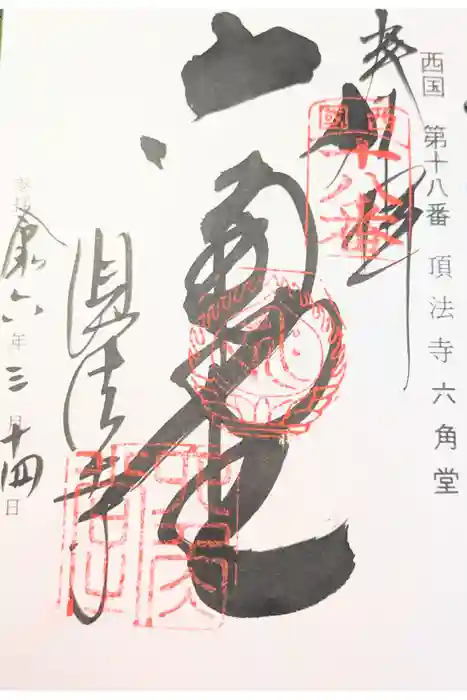 西国 第十八番 頂法寺六角堂
奉拝
西國
十八番
六角堂
頂法寺
参拝 令和六年三月十四日